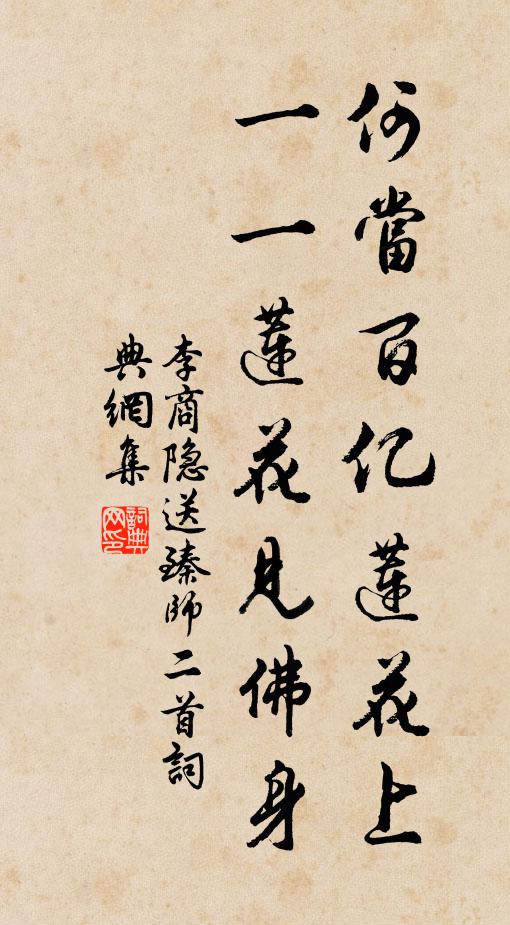 何當百亿蓮花上
一一蓮花見佛身
李商隐送臻師二首詞
典網集
詞典网印